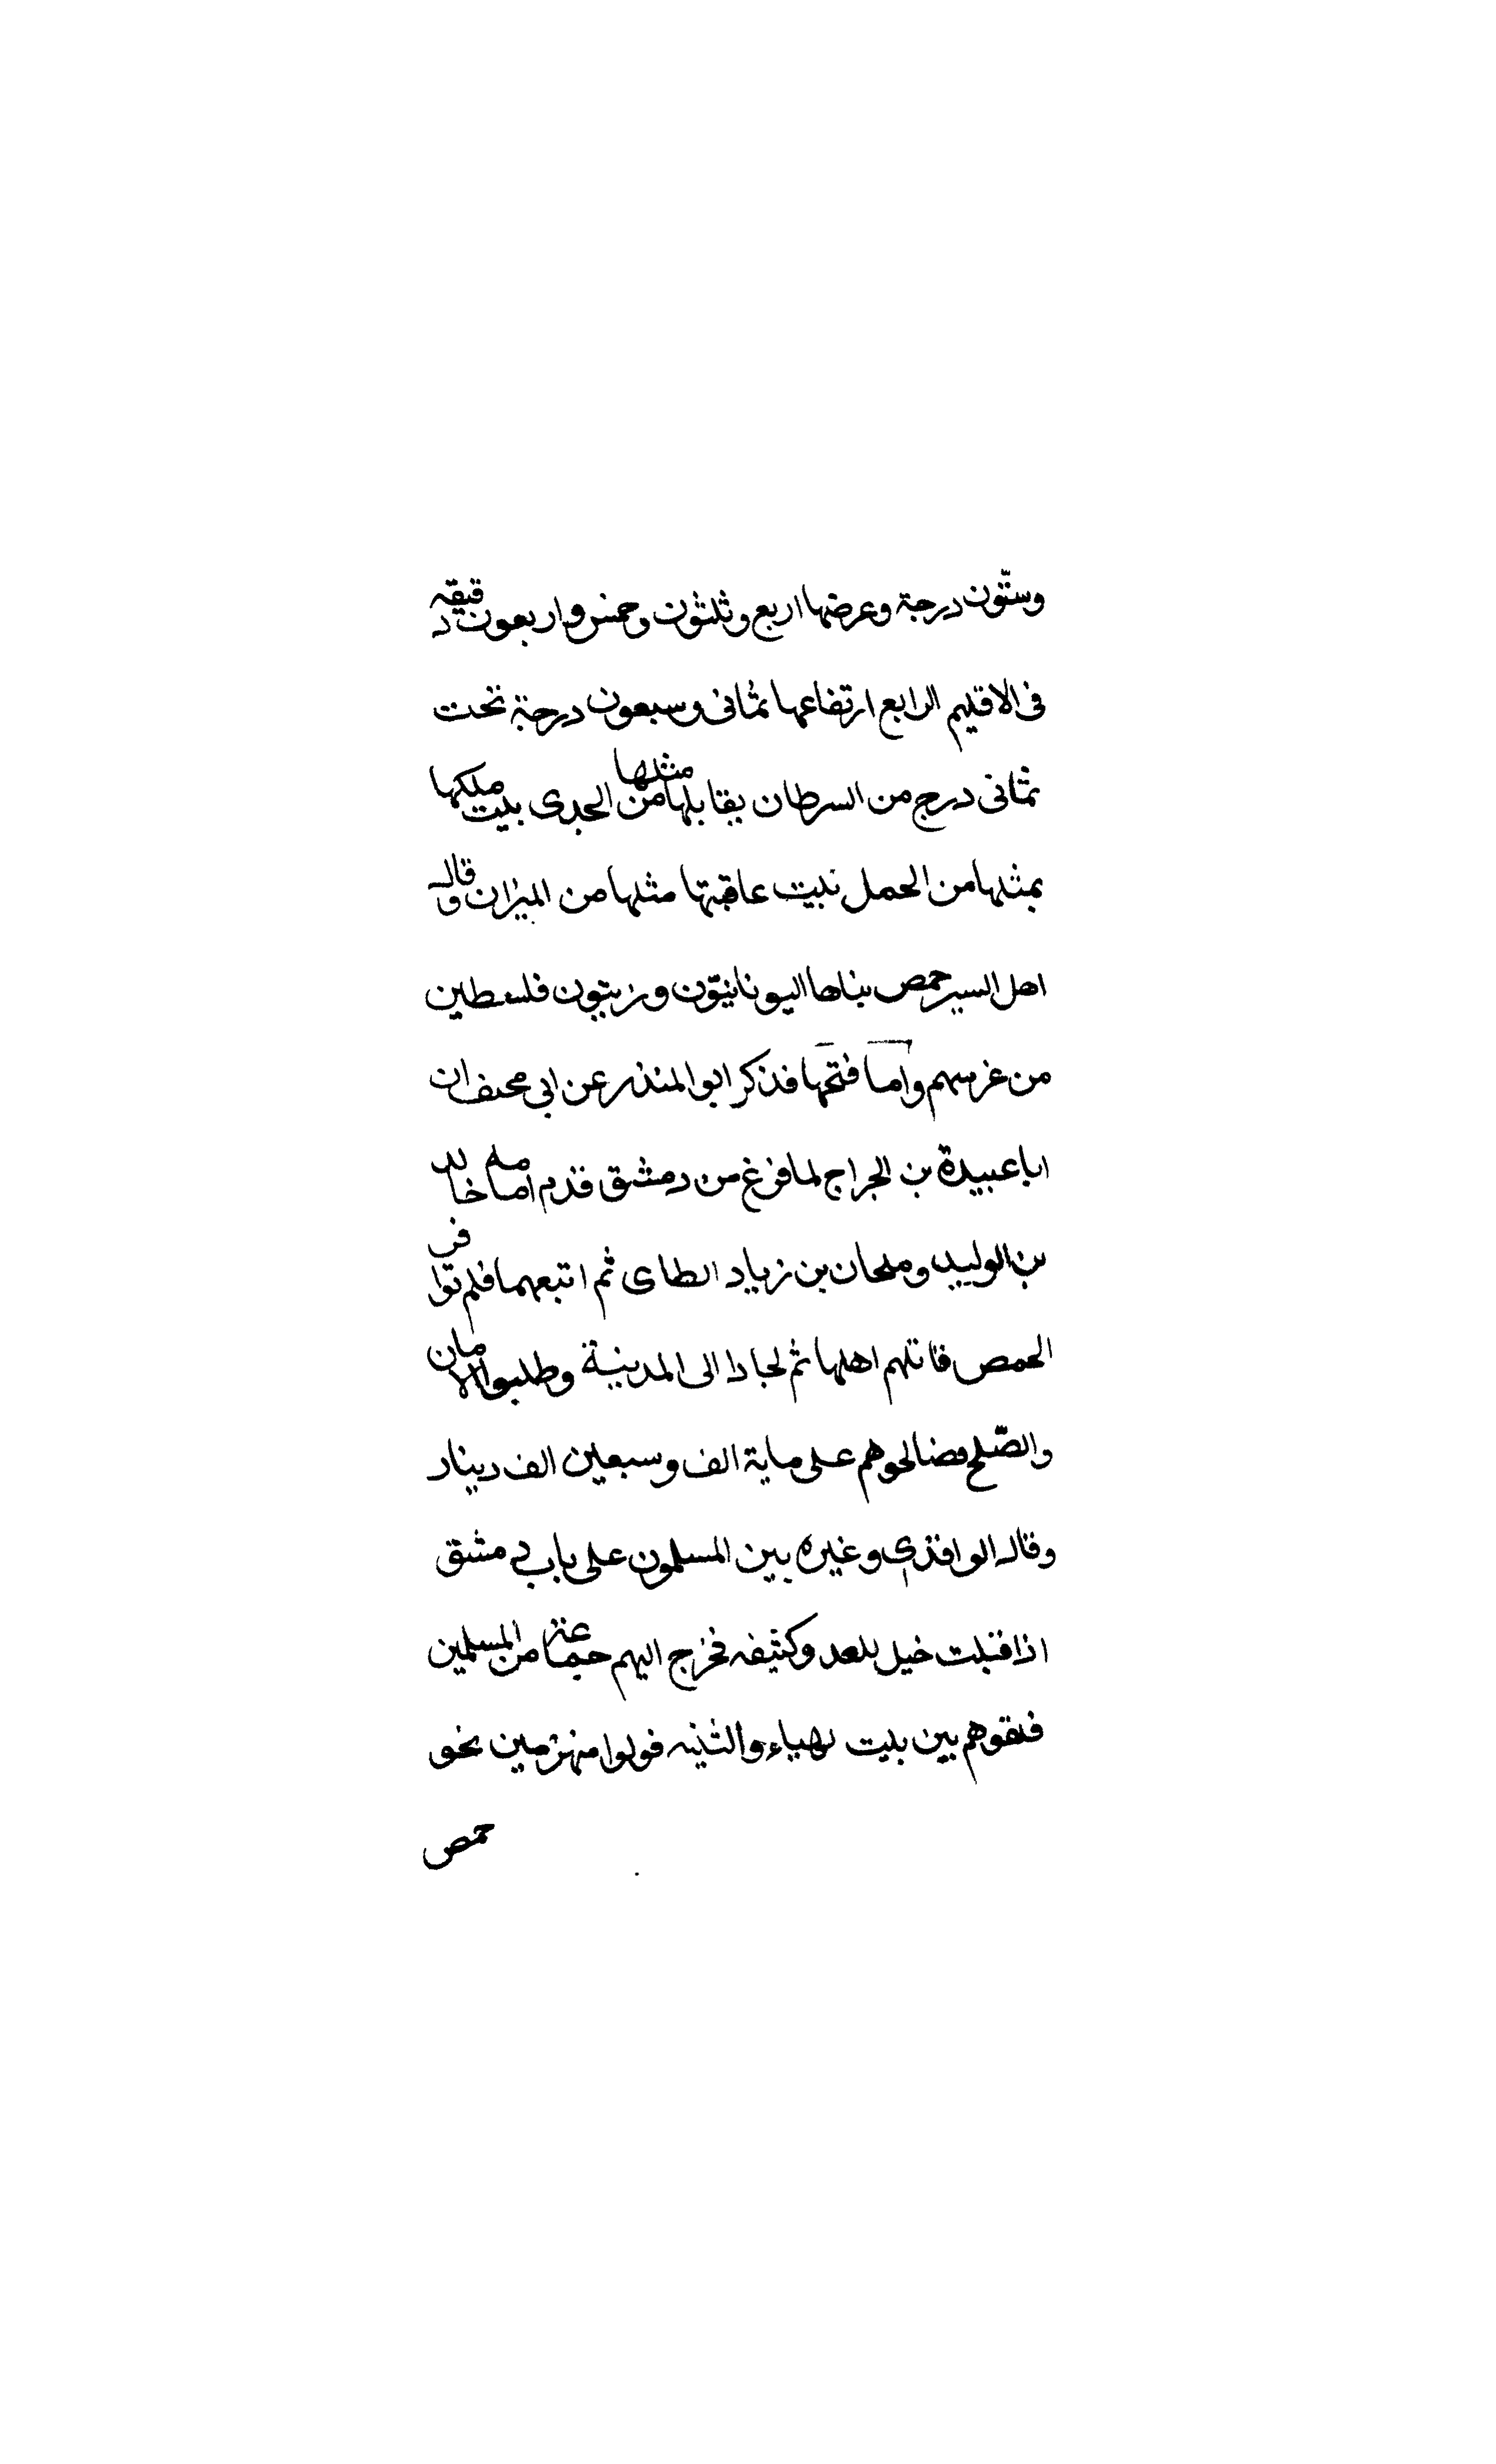 وستّون درجة وعرضها اربع وثلثون وخمس واربعون دقيقه
فى الاقليم الرابع ارتفاعها ثمانى وسبعون درجة تحت
ثمانى درج من السرطان يقابلها مثلها من الجدى بيت ملكها
بمثلها من الحمل بيت عاقبتها مثلها من الميزان وقال
اهل السير حمص بناها اليونانيّون وزيتون فلسطين
من غرسهم واما فتحها فذكر ابو المنذر عن ابى مخنف ان
ابا عبيدة بن الجراح لما فرغ من دمشق قدم امامه خالد
بن الوليد وملحان بن زياد الطاى ثم اتبعهما فلم توافى
الحمص قاتلهم اهلها ثم لجاءا الى المدينة وطلبوا الامان
والصّلح فصالحوهم على ماية الف وسبعين الف دينار
وقال الواقدى وغيره بين المسلمون على باب دمشق
اذا قبلت خيل للعدو كثيفه فخرج اليهم جماعة من المسلمين
فلقوهم بين بيت لهياء والثنيه فولوا منهزمين نحو
حمص